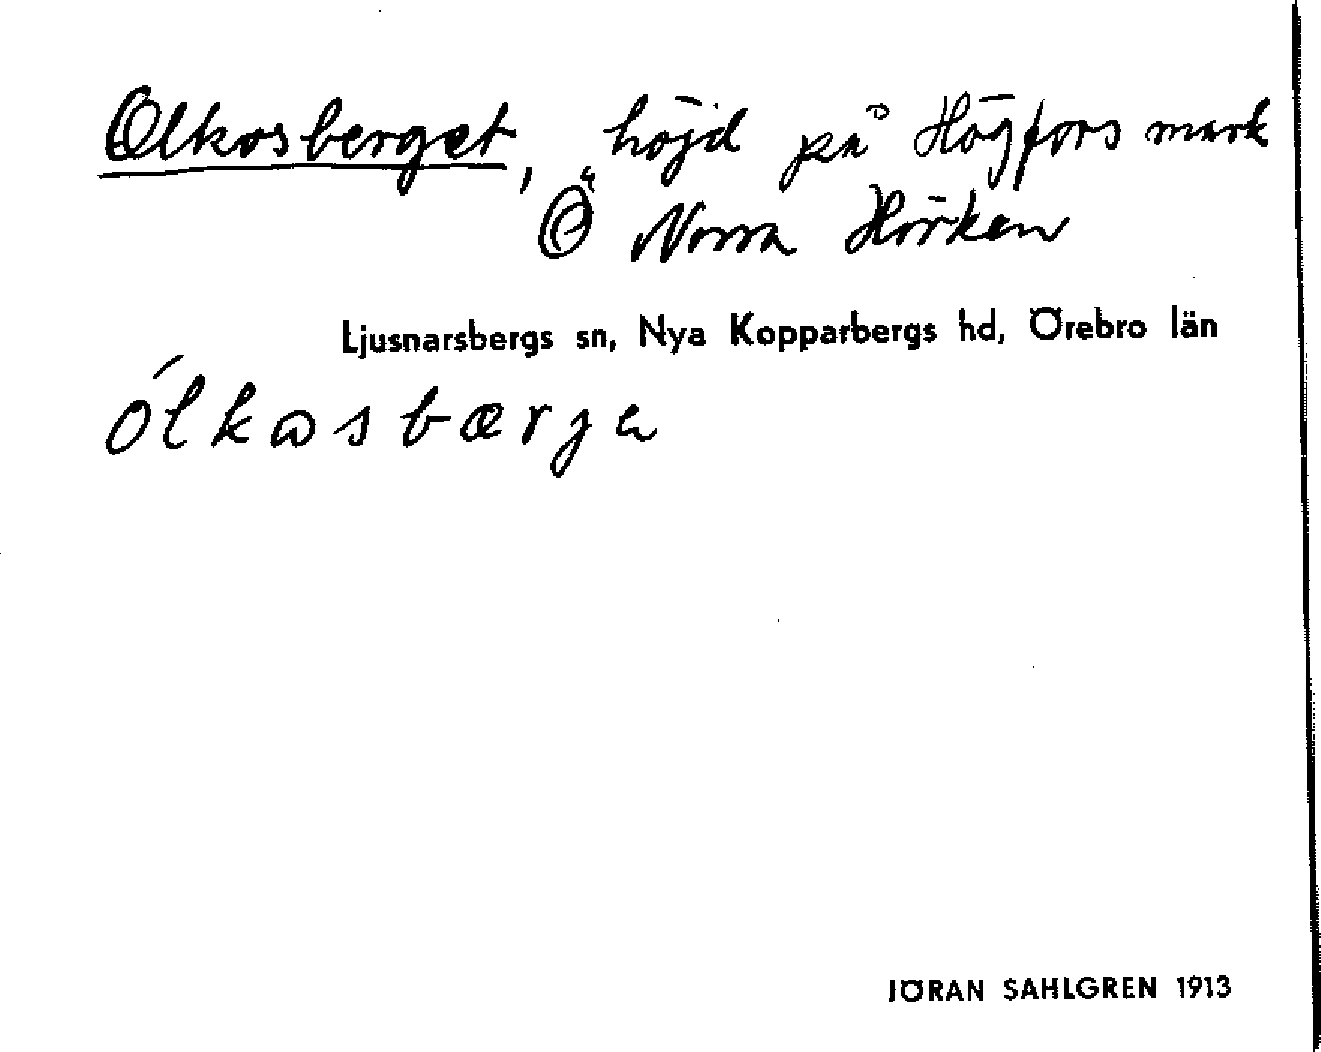 Olkosberget, höjd på Högfors mark
Ö Norra Hörken
Ljusnarsbergs sn, Nya Kopparbergs hd, Örebro län
ólkωsbærja
JÖRAN SAHLGREN 1913